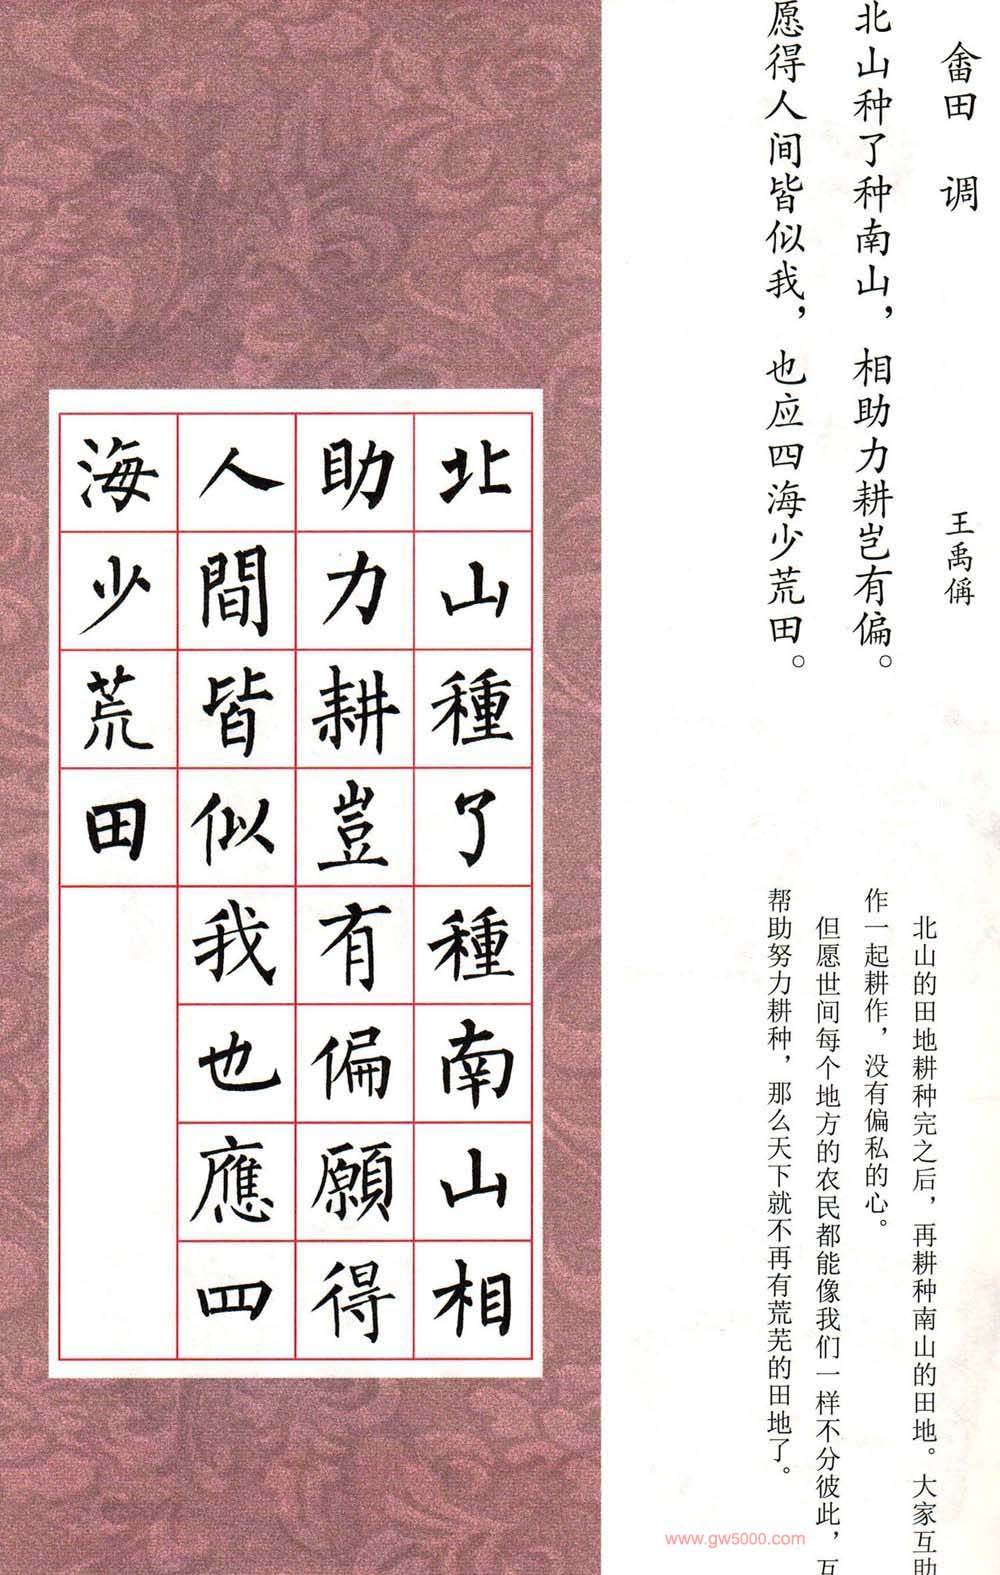 畲田 调
王禹偁
北山种了种南山，相助力耕岂有偏。
愿得人间皆似我，也应四海少荒田。
北山的田地耕种完之后，再耕种南山的田地。大家互助
作一起耕作，没有偏私的心。
但愿世间每个地方的农民都能像我们一样不分彼此，互
帮助努力耕种，那么天下就不再有荒芜的田地了。
北山種了種南山相
助力耕豈有偏願得
人間皆似我也應四
海少荒田
www.gw5000.com